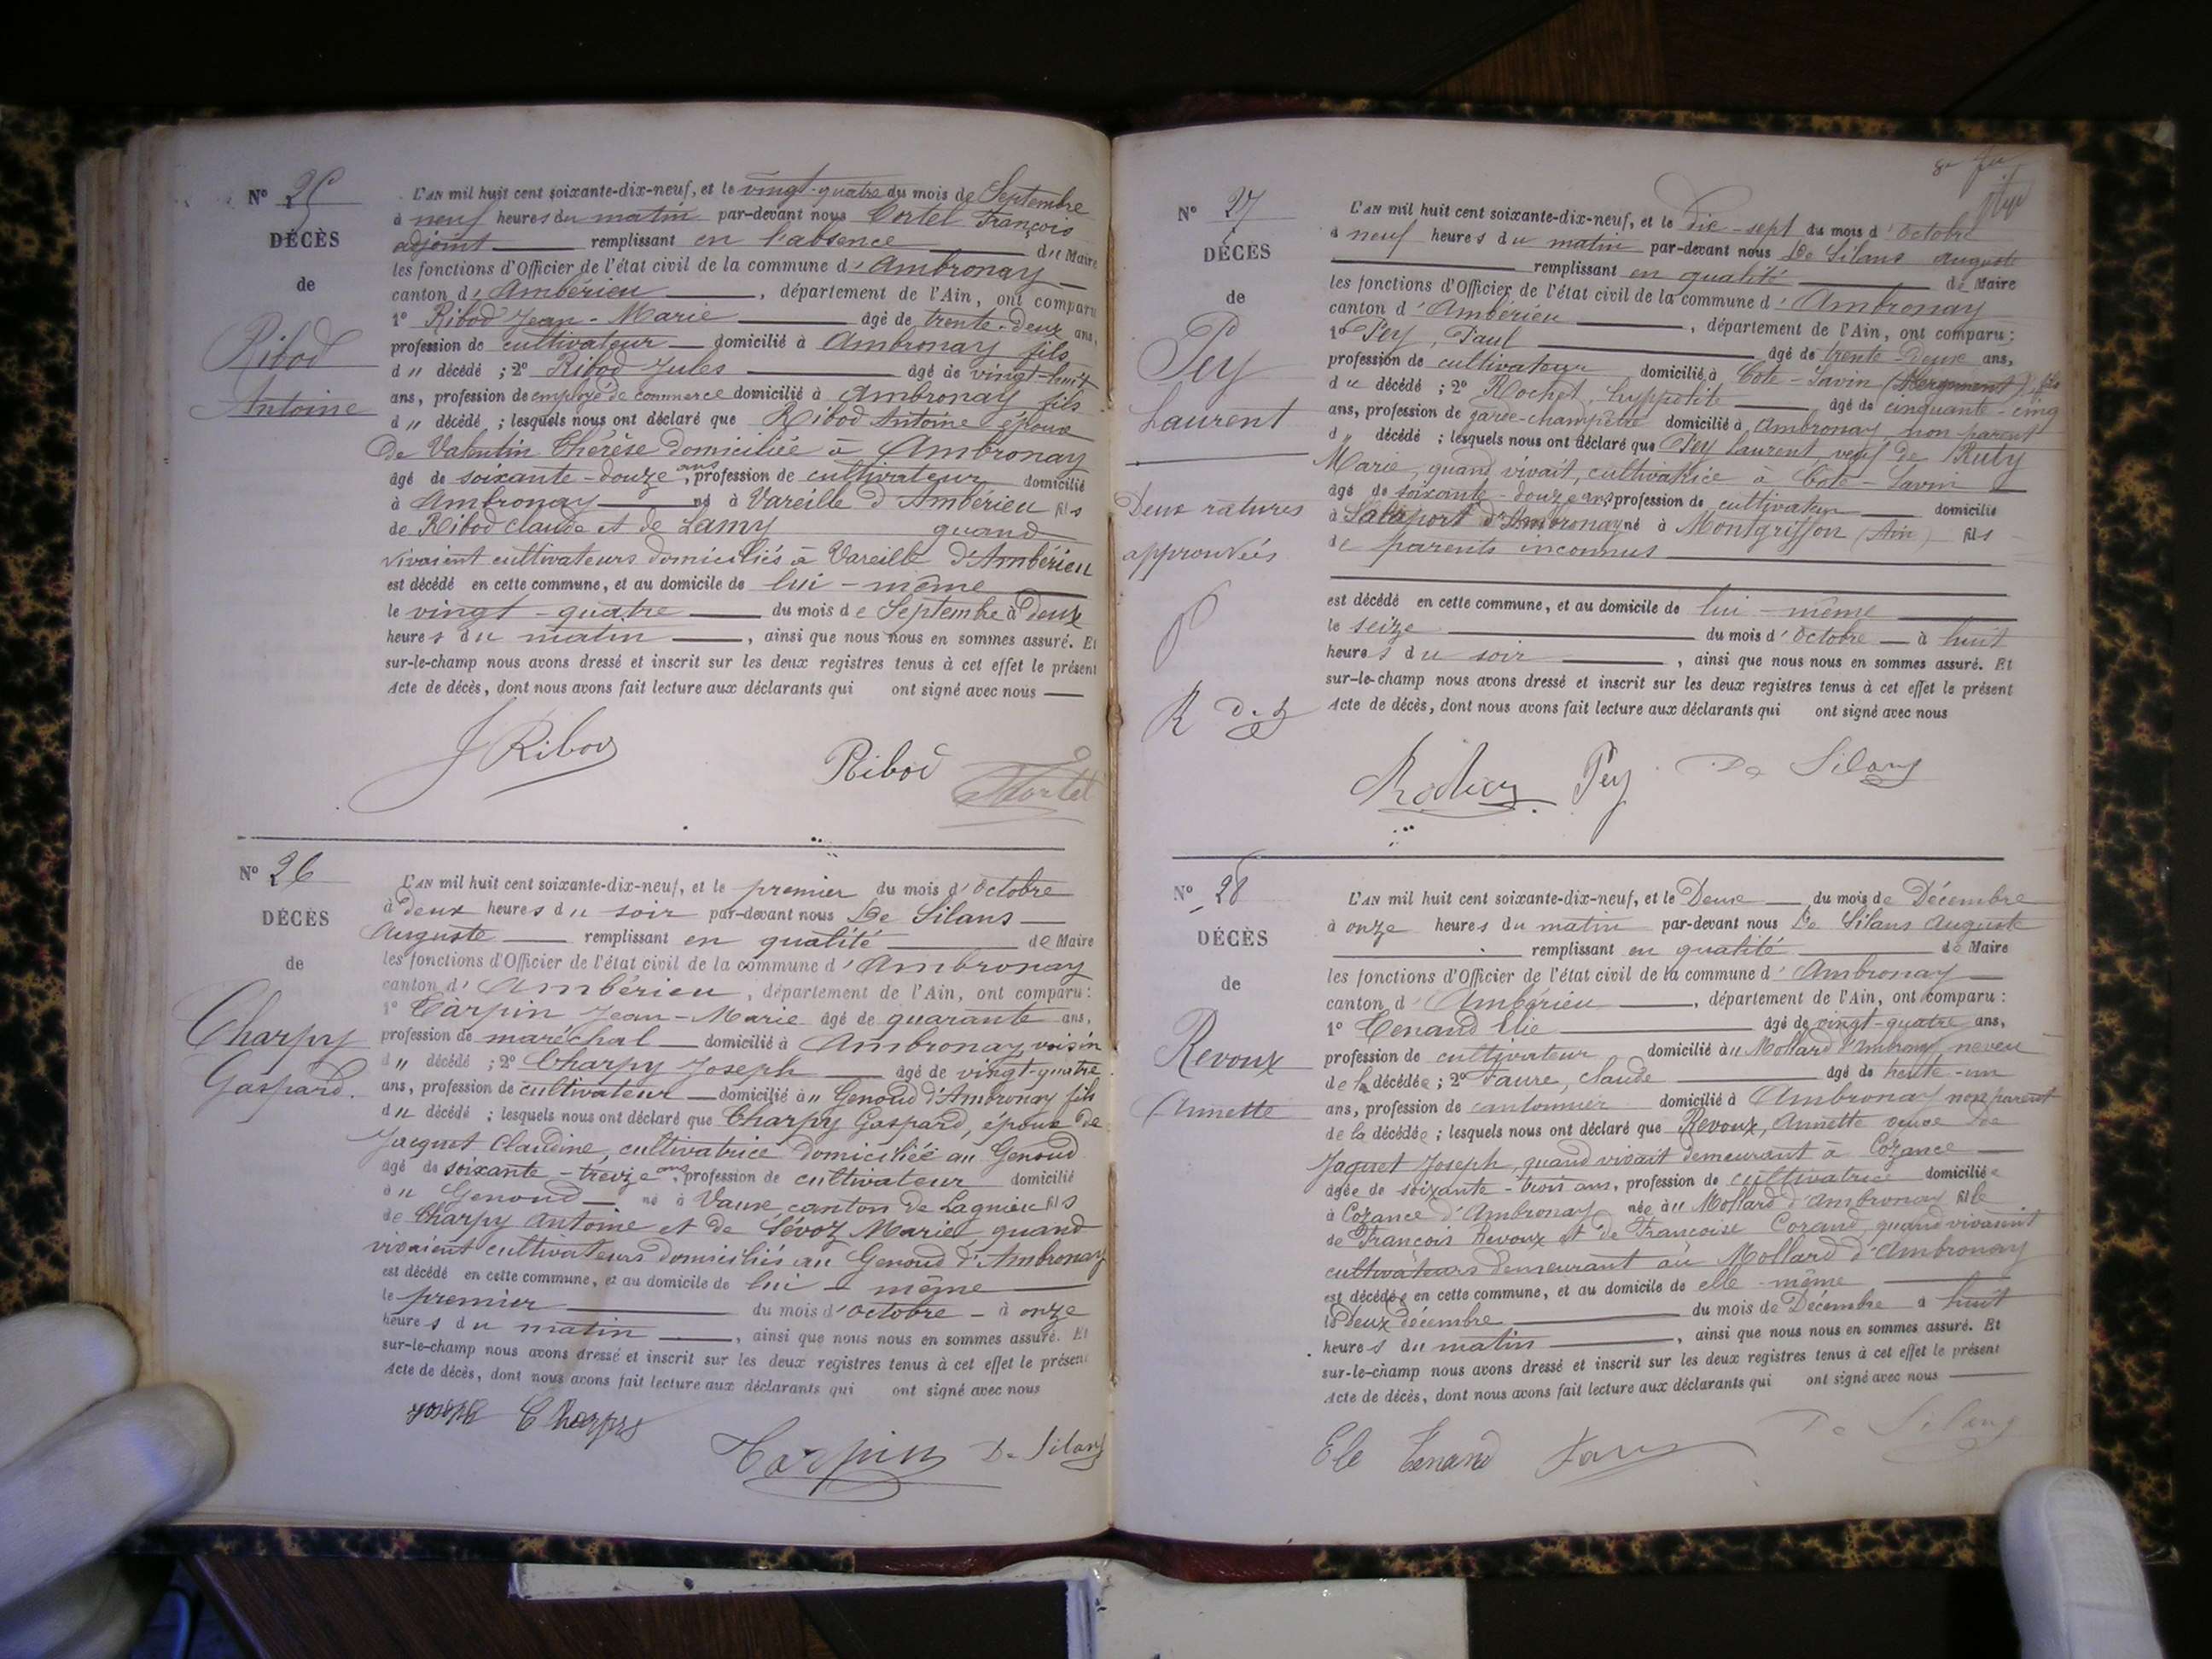 N° 25
DÉCÈS
de
Ribod
Antoine
L'AN mil huit cent soixante-dix-neuf, et le vingt-quatre du mois de Septembre
à neuf heures du matin par-devant nous Cortel François
adjoint remplissant en l'absence du Maire
les fonctions d'Officier de l'état civil de la commune d'Ambronay
canton d'Ambérieu, département de l'Ain, ont comparu
1° Ribod Jean-Marie âgé de trente-deux ans,
profession de cultivateur domicilié à Ambronay fils
d" décédé ; 2° Ribod Jules âgé de vingt-huit
ans, profession de employé de commerce domicilié à Ambronay fils
d" décédé ; lesquels nous ont déclaré que Ribod Antoine époux
de Valentin Thérèse domiciliée à Ambronay
âgé de soixante-douze ans, profession de cultivateur domicilié
à Ambronay né à Vareille d'Ambérieu fils
de Ribod Claude et de Lamy quand
vivaient cultivateurs domiciliés à Vareille d'Ambérieu
est décédé en cette commune, et au domicile de lui-même
le vingt-quatre du mois de Septembre à deux
heures du matin, ainsi que nous nous en sommes assuré. Et
sur-le-champ nous avons dressé et inscrit sur les deux registres tenus à cet effet le présent
Acte de décès, dont nous avons fait lecture aux déclarants qui ont signé avec nous
J Ribod Ribod Cortel
N° 26
DÉCÈS
de
Charpy
Gaspard.
L'AN mil huit cent soixante-dix-neuf, et le premier du mois d'Octobre
à deux heures du soir par-devant nous De Silans
Auguste remplissant en qualité de Maire
les fonctions d'Officier de l'état civil de la commune d'Ambronay
canton d'Ambérieu, département de l'Ain, ont comparu :
1° Carpin Jean-Marie âgé de quarante ans,
profession de maréchal domicilié à Ambronay voisin
d" décédé ; 2° Charpy Joseph âgé de vingt-quatre
ans, profession de cultivateur domicilié au Genoud d'Ambronay fils
du décédé ; lesquels nous ont déclaré que Charpy Gaspard, époux de
Jacquet Claudine, cultivatrice domiciliée au Genoud
âgé de soixante-treize ans, profession de cultivateur domicilié
au Genoud né à Vaux canton de Lagnieu fils
de Charpy Antoine et de Sévoz Marie quand
vivaient cultivateurs domiciliés au Genoud d'Ambronay
est décédé en cette commune, et au domicile de lui-même
le premier du mois d'Octobre à onze
heures du matin, ainsi que nous nous en sommes assuré. Et
sur-le-champ nous avons dressé et inscrit sur les deux registres tenus à cet effet le présent
Acte de décès, dont nous avons fait lecture aux déclarants qui ont signé avec nous
Joseph Charpy
Carpin De Silans
N° 27
DÉCÈS
de
Pey
Laurent
Deux ratures
approuvées
P
R D. S
L'AN mil huit cent soixante-dix-neuf, et le dix-sept du mois d'Octobre
à neuf heures du matin par-devant nous De Silans Auguste
remplissant en qualité de Maire
les fonctions d'Officier de l'état civil de la commune d'Ambronay
canton d'Ambérieu, département de l'Ain, ont comparu :
1° Pey, Paul âgé de trente-deux ans,
profession de cultivateur domicilié à Cote-Savin fils
du décédé ; 2° Rochet, Hyppolite âgé de cinquante-cinq
ans, profession de garde-champêtre domicilié à Ambronay non parent
d" décédé ; lesquels nous ont déclaré que Pey Laurent, veuf de Ruty
Marie, quand vivait, cultivatrice à Cote-Savin
âgé de soixante-douze ans, profession de cultivateur domicilié
à Salaport d'Ambronay né à Montgriffon (Ain) fils
de parents inconnus
est décédé en cette commune, et au domicile de lui-même
le seize du mois d'Octobre à huit
heures du soir, ainsi que nous nous en sommes assuré. Et
sur-le-champ nous avons dressé et inscrit sur les deux registres tenus à cet effet le présent
Acte de décès, dont nous avons fait lecture aux déclarants qui ont signé avec nous
Rochet Pey De Silans
N° 28
DÉCÈS
de
Revoux
Annette
L'AN mil huit cent soixante-dix-neuf, et le Deux du mois de Décembre
à onze heures du matin par-devant nous De Silans Auguste
remplissant en qualité de Maire
les fonctions d'Officier de l'état civil de la commune d'Ambronay
canton d'Ambérieu, département de l'Ain, ont comparu :
1° Tenand Elie âgé de vingt-quatre ans,
profession de cultivateur domicilié au Mollard d'Ambronay neveu
de la décédée ; 2° Faure, Claude âgé de trente-un
ans, profession de cantonnier domicilié à Ambronay non parent
de la décédée ; lesquels nous ont déclaré que Revoux, Annette veuve de
Jaquet Joseph, quand vivait demeurant à Cozance
âgée de soixante-trois ans, profession de cultivatrice domiciliée
à Cozance d'Ambronay née au Mollard d'Ambronay fille
de François Revoux et de Françoise Corand, quand vivaient
cultivateurs demeurant au Mollard d'Ambronay
est décédée en cette commune, et au domicile de elle-même
le Deux décembre du mois de Décembre à huit
heures du matin, ainsi que nous nous en sommes assuré. Et
sur-le-champ nous avons dressé et inscrit sur les deux registres tenus à cet effet le présent
Acte de décès, dont nous avons fait lecture aux déclarants qui ont signé avec nous
Elie Tenand Faure De Silans